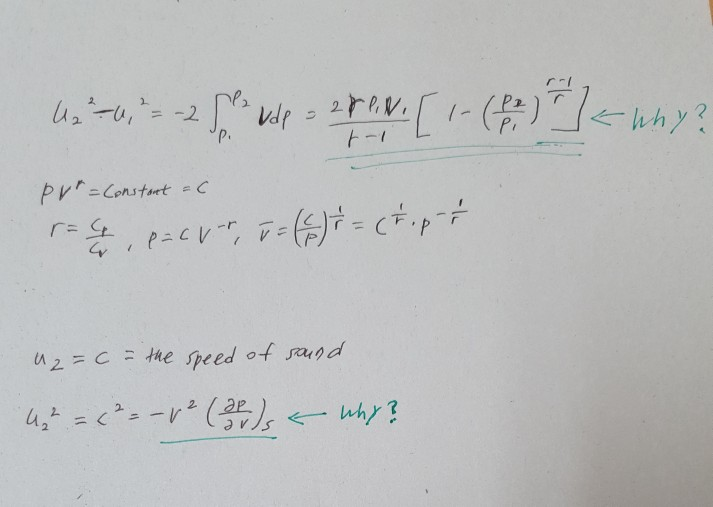 u₂² - u₁² = -2 ∫_{P₁}^{P₂} Vdp = 2rP₁V₁/(r-1) [ 1 - (P₂/P₁)^{(r-1)/r} ] ← Why?
PV^r = Constant = C
r = Cp/Cv , p = C V^{-r}, V = (C/P)^{1/r} = C^{1/r} · p^{-1/r}
u₂ = c = the speed of sound
u₂² = c² = -V² (∂P/∂V)_S ← Why?